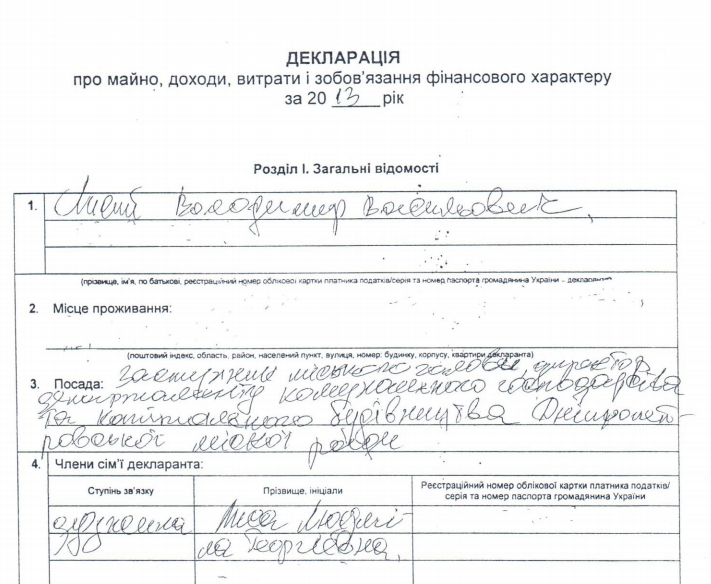 ДЕКЛАРАЦІЯ
про майно, доходи, витрати і зобов'язання фінансового характеру
за 20 13 рік
Розділ І. Загальні відомості
1. Володимир Васильович
(прізвище, ім'я, по батькові, реєстраційний номер облікової картки платника податків/серія та номер паспорта громадянина України – декларанта)
2. Місце проживання:
(поштовий індекс, область, район, населений пункт, вулиця, номер: будинку, корпусу, квартири декларанта)
3. Посада: заступник міського голови, директор
департаменту комунального господарства
та капітального будівництва Дніпропет-
ровської міської ради
4. Члени сім'ї декларанта:
Ступінь зв'язку Прізвище, ініціали Реєстраційний номер облікової картки платника податків/
серія та номер паспорта громадянина України
дружина Людми-
ла Георгіївна